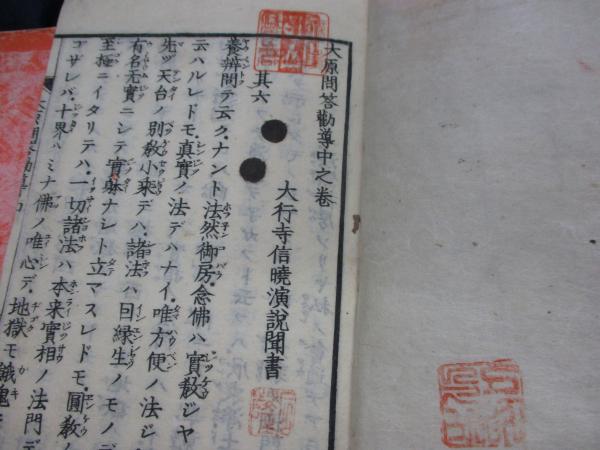 大原問答勸導中之卷
大行寺信曉演説聞書
其六
養辨問テ云ク・ナント法然御房・念佛ハ實敎ジヤ
云ハルレドモ・真實ノ法デハナイ・唯方便ノ法ジ
先ヅ天台ノ別敎小乘デハ・諸法ハ因縁生ノモノデ
有名无實ニシテ實躰ナシト立マスレドモ・圓敎ノ
至極ニイタリテハ・一切諸法ハ本来實相ノ法門デ
ゴザレバ・十界ハミナ佛ノ唯心デ・地獄モ餓鬼モ
大原問答勸導中